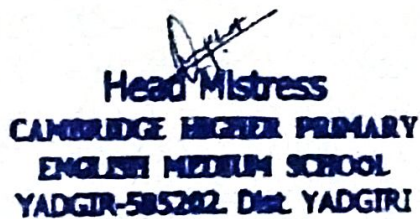 Head Mistress
CAMBRIDGE HIGHER PRIMARY
ENGLISH MEDIUM SCHOOL
YADGIR-585202. Dist. YADGIRI